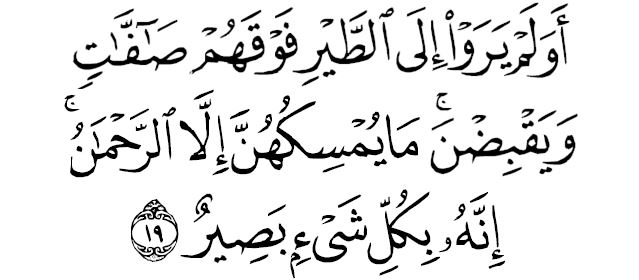 أَوَلَمْ يَرَوْا۟ إِلَى ٱلطَّيْرِ فَوْقَهُمْ صَـٰٓفَّـٰتٍ
وَيَقْبِضْنَ ۚ مَا يُمْسِكُهُنَّ إِلَّا ٱلرَّحْمَـٰنُ ۚ
إِنَّهُۥ بِكُلِّ شَىْءٍۭ بَصِيرٌ ١٩